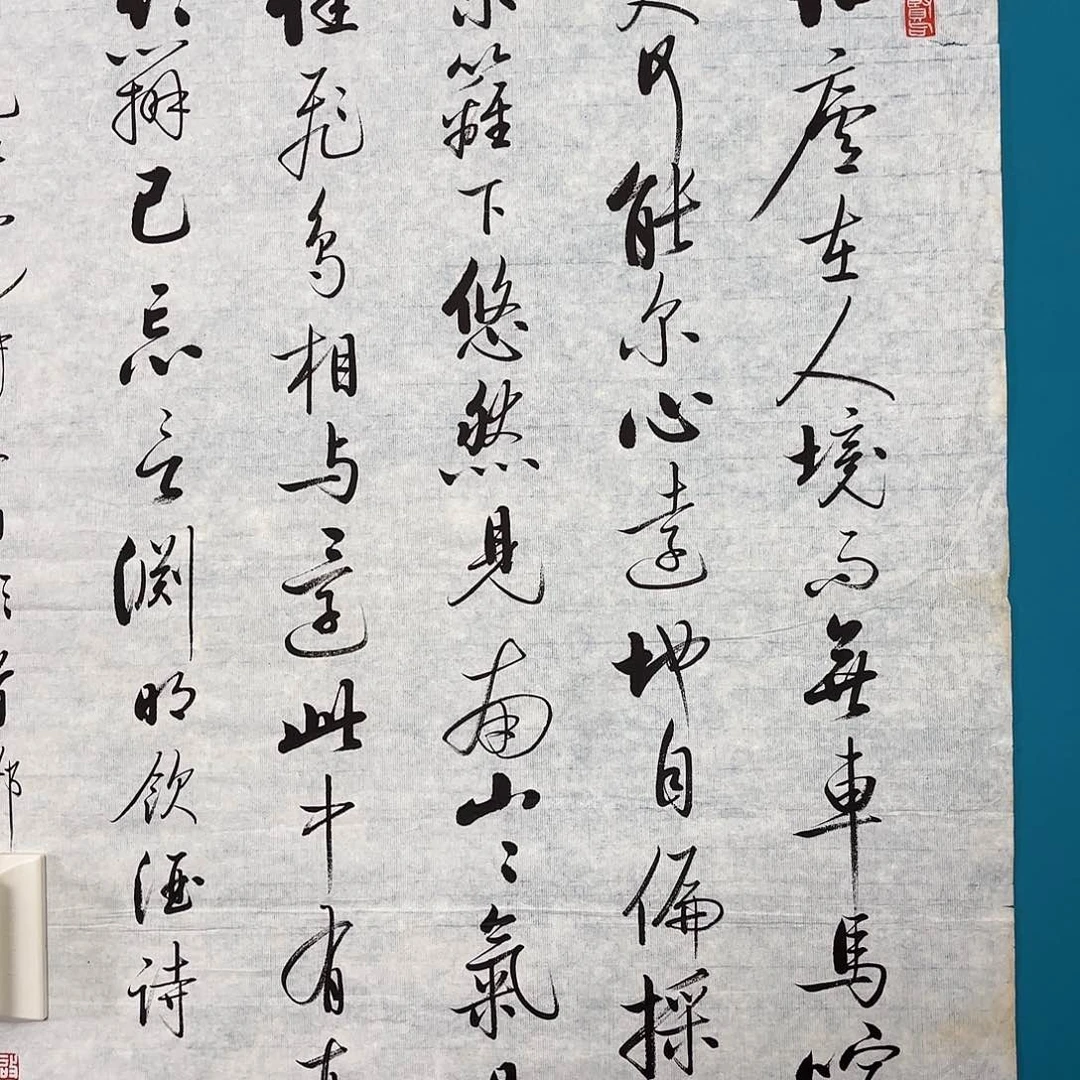 廬在人境而無車馬喧
君何能尔心遠地自偏採
東籬下悠然見南山〻氣日
佳飛鳥相与還此中有真
欲辨已忘言淵明飲酒詩